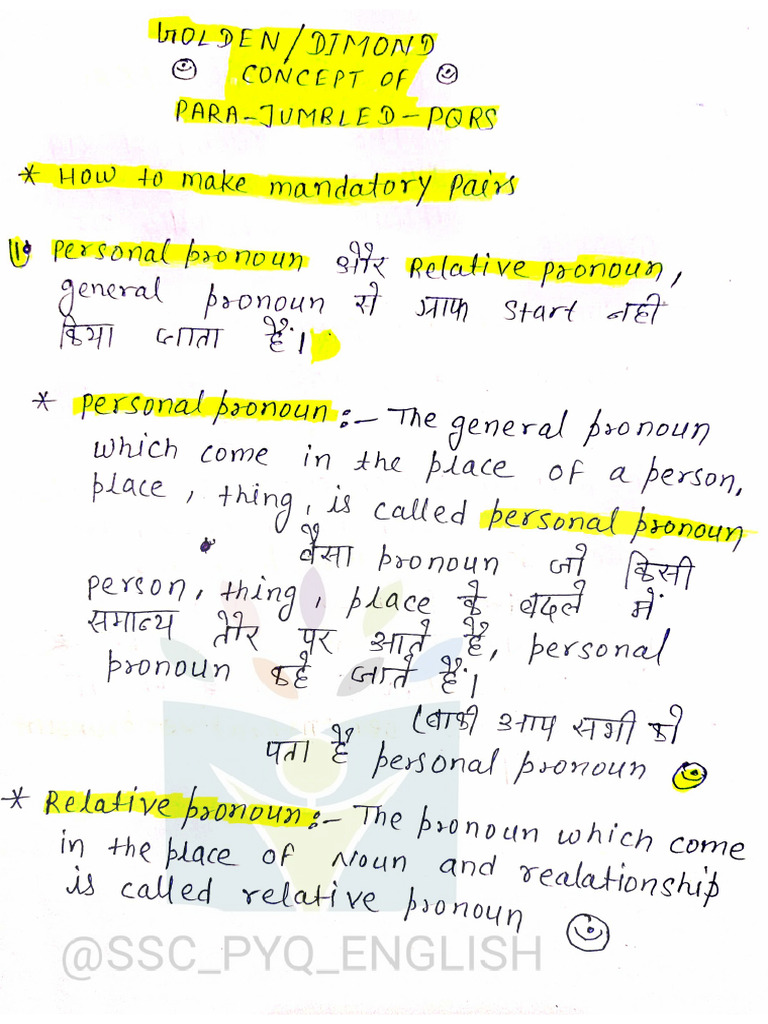 GOLDEN/DIMOND
CONCEPT OF
PARA-JUMBLED-PQRS
* HOW to make mandatory Pairs
1. Personal pronoun और Relative pronoun,
general pronoun से प्रायः start नहीं
किया जाता है।
* Personal pronoun:- The general pronoun
which come in the place of a person,
place, thing, is called personal pronoun
वैसा pronoun जो किसी
person, thing, place के बदले में
समान्य तौर पर आते है, personal
pronoun कहे जाते हैं।
(बाकी आप सभी को
पता है personal pronoun
* Relative pronoun:- The pronoun which come
in the place of Noun and realationship
is called relative pronoun
@SSC_PYQ_ENGLISH